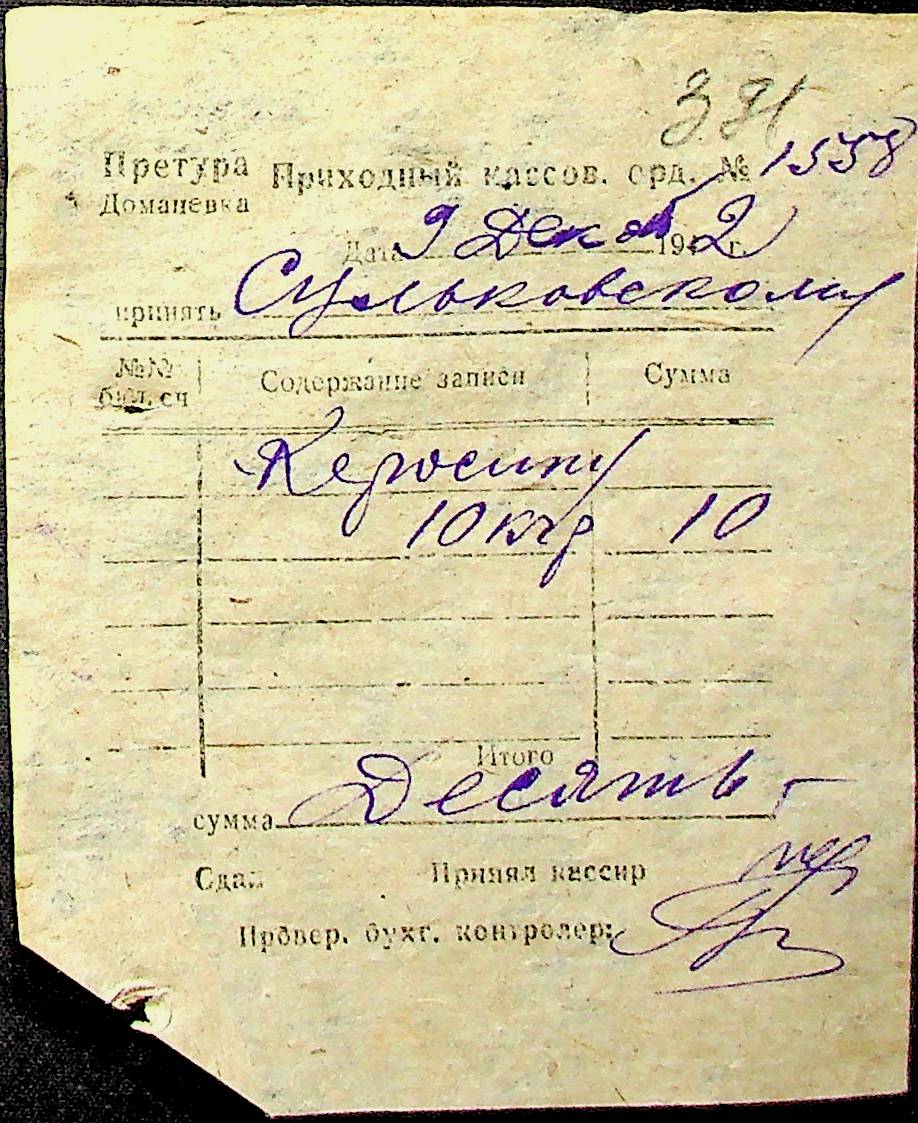 391
Претура Приходный кассов. орд. № 1558
Доманевка
Дата 9 Дек 1942 г.
принять Сульковскому
№№ бюл. сч Содержание записи Сумма
Керосину
10 кгр 10
Итого
сумма Десять -
Сдал Принял кассир
Провер. бухг. контролер: